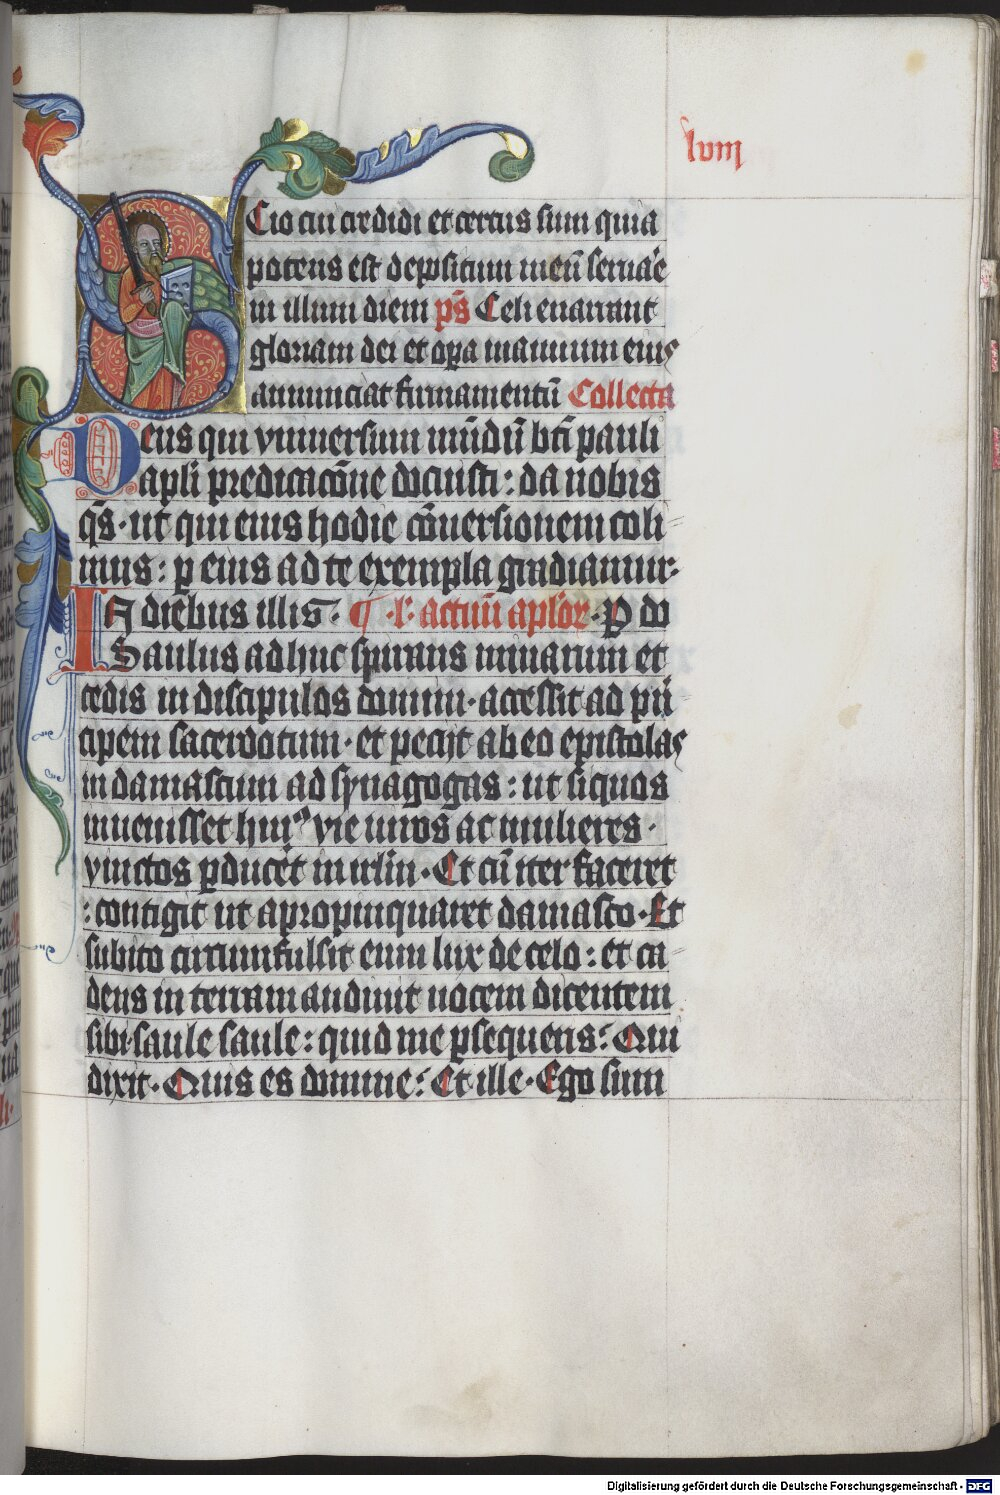 lviij
Scio cui credidi et certus sum quia
potens est depositum meū seruar̄e
in illum diem ps̄ Celi enarrant
gloriam dei et opa manuum eius
annunciat firmamentū Collecta
Deus qui vniuersum mūdū bt̄i pauli
apl̄i predicacōne docuisti : da nobis
qs̄ · ut qui eius hodie cōuersionem coli
mus : p eius ad te exempla gradiamur ·
In diebus illis · ¶ · l' actuū aplor̄ · P do
Saulus adhuc spirans minarum et
cedis in discipulos domini · accessit ad pri̅
cipem sacerdotum · et pecijt ab eo epistolas
in damascum ad synagogas : ut siquos
inuenisset huiꝰ vie uiros ac mulieres ·
vinctos pducēt in irlm̄ · Et cū iter faceret
: contigit ut apropinquaret damasco · Et
subito circumfulsit eum lux de celo : et ca
dens in terram audiuit uocem dicentem
sibi · saule saule : quid me psequeris ? Qui
dixit · Quis es domine ? Et ille · Ego sum
Digitalisierung gefördert durch die Deutsche Forschungsgemeinschaft - DFG